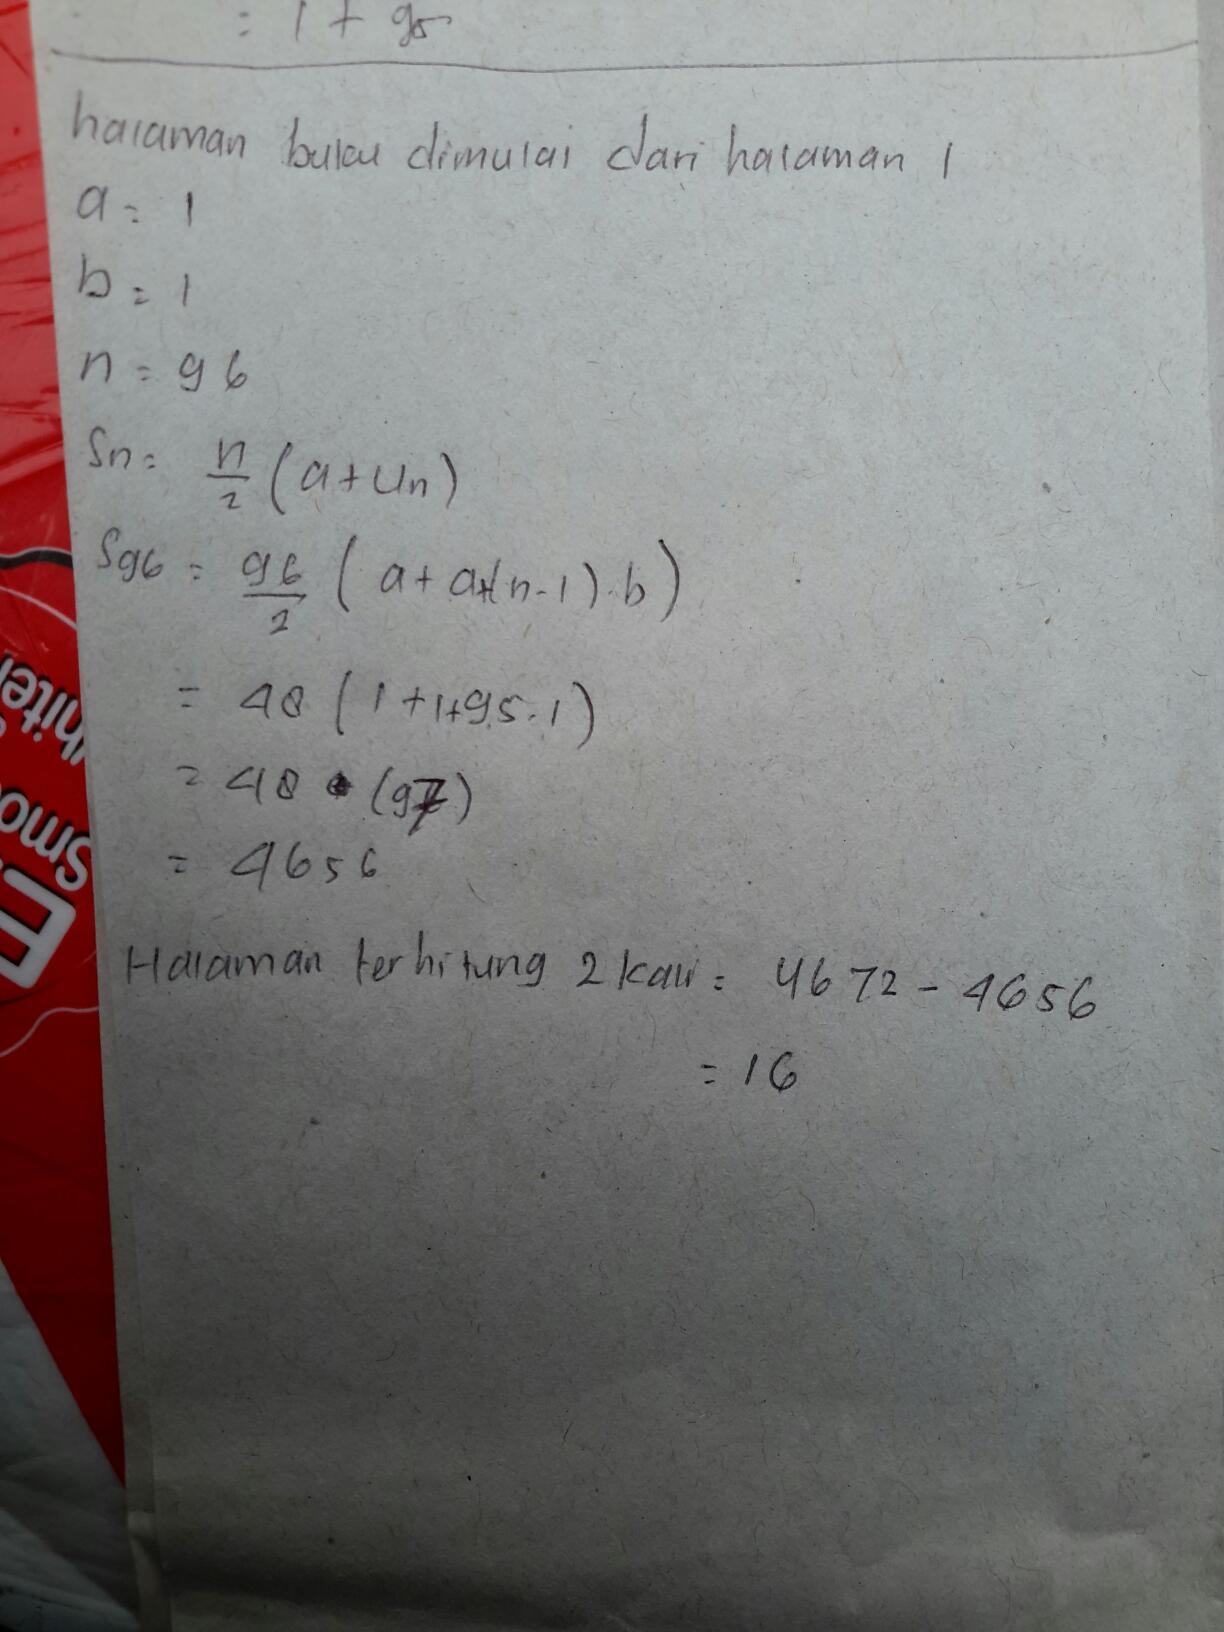 = 1 + 95
halaman buku dimulai dari halaman 1
a = 1
b = 1
n = 96
Sn = n/2 (a + Un)
S96 = 96/2 (a + a+(n-1).b)
= 48 (1+1+95.1)
= 48 • (97)
= 4656
Halaman terhitung 2 kali = 4672 - 4656
= 16